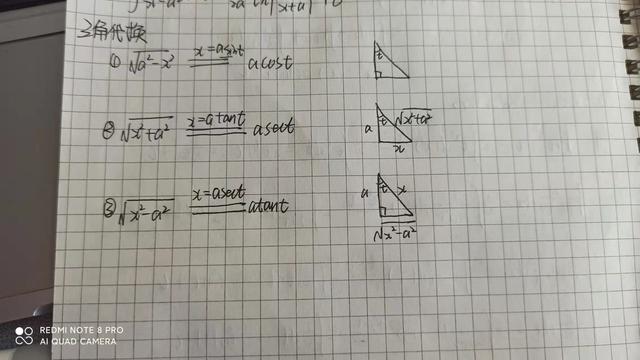 三角代换
① √(a²-x²) x=asint acost
t
② √(x²+a²) x=atant asect
t
a √(x²+a²)
x
③ √(x²-a²) x=asect atant
a t x
√(x²-a²)
REDMI NOTE 8 PRO
AI QUAD CAMERA